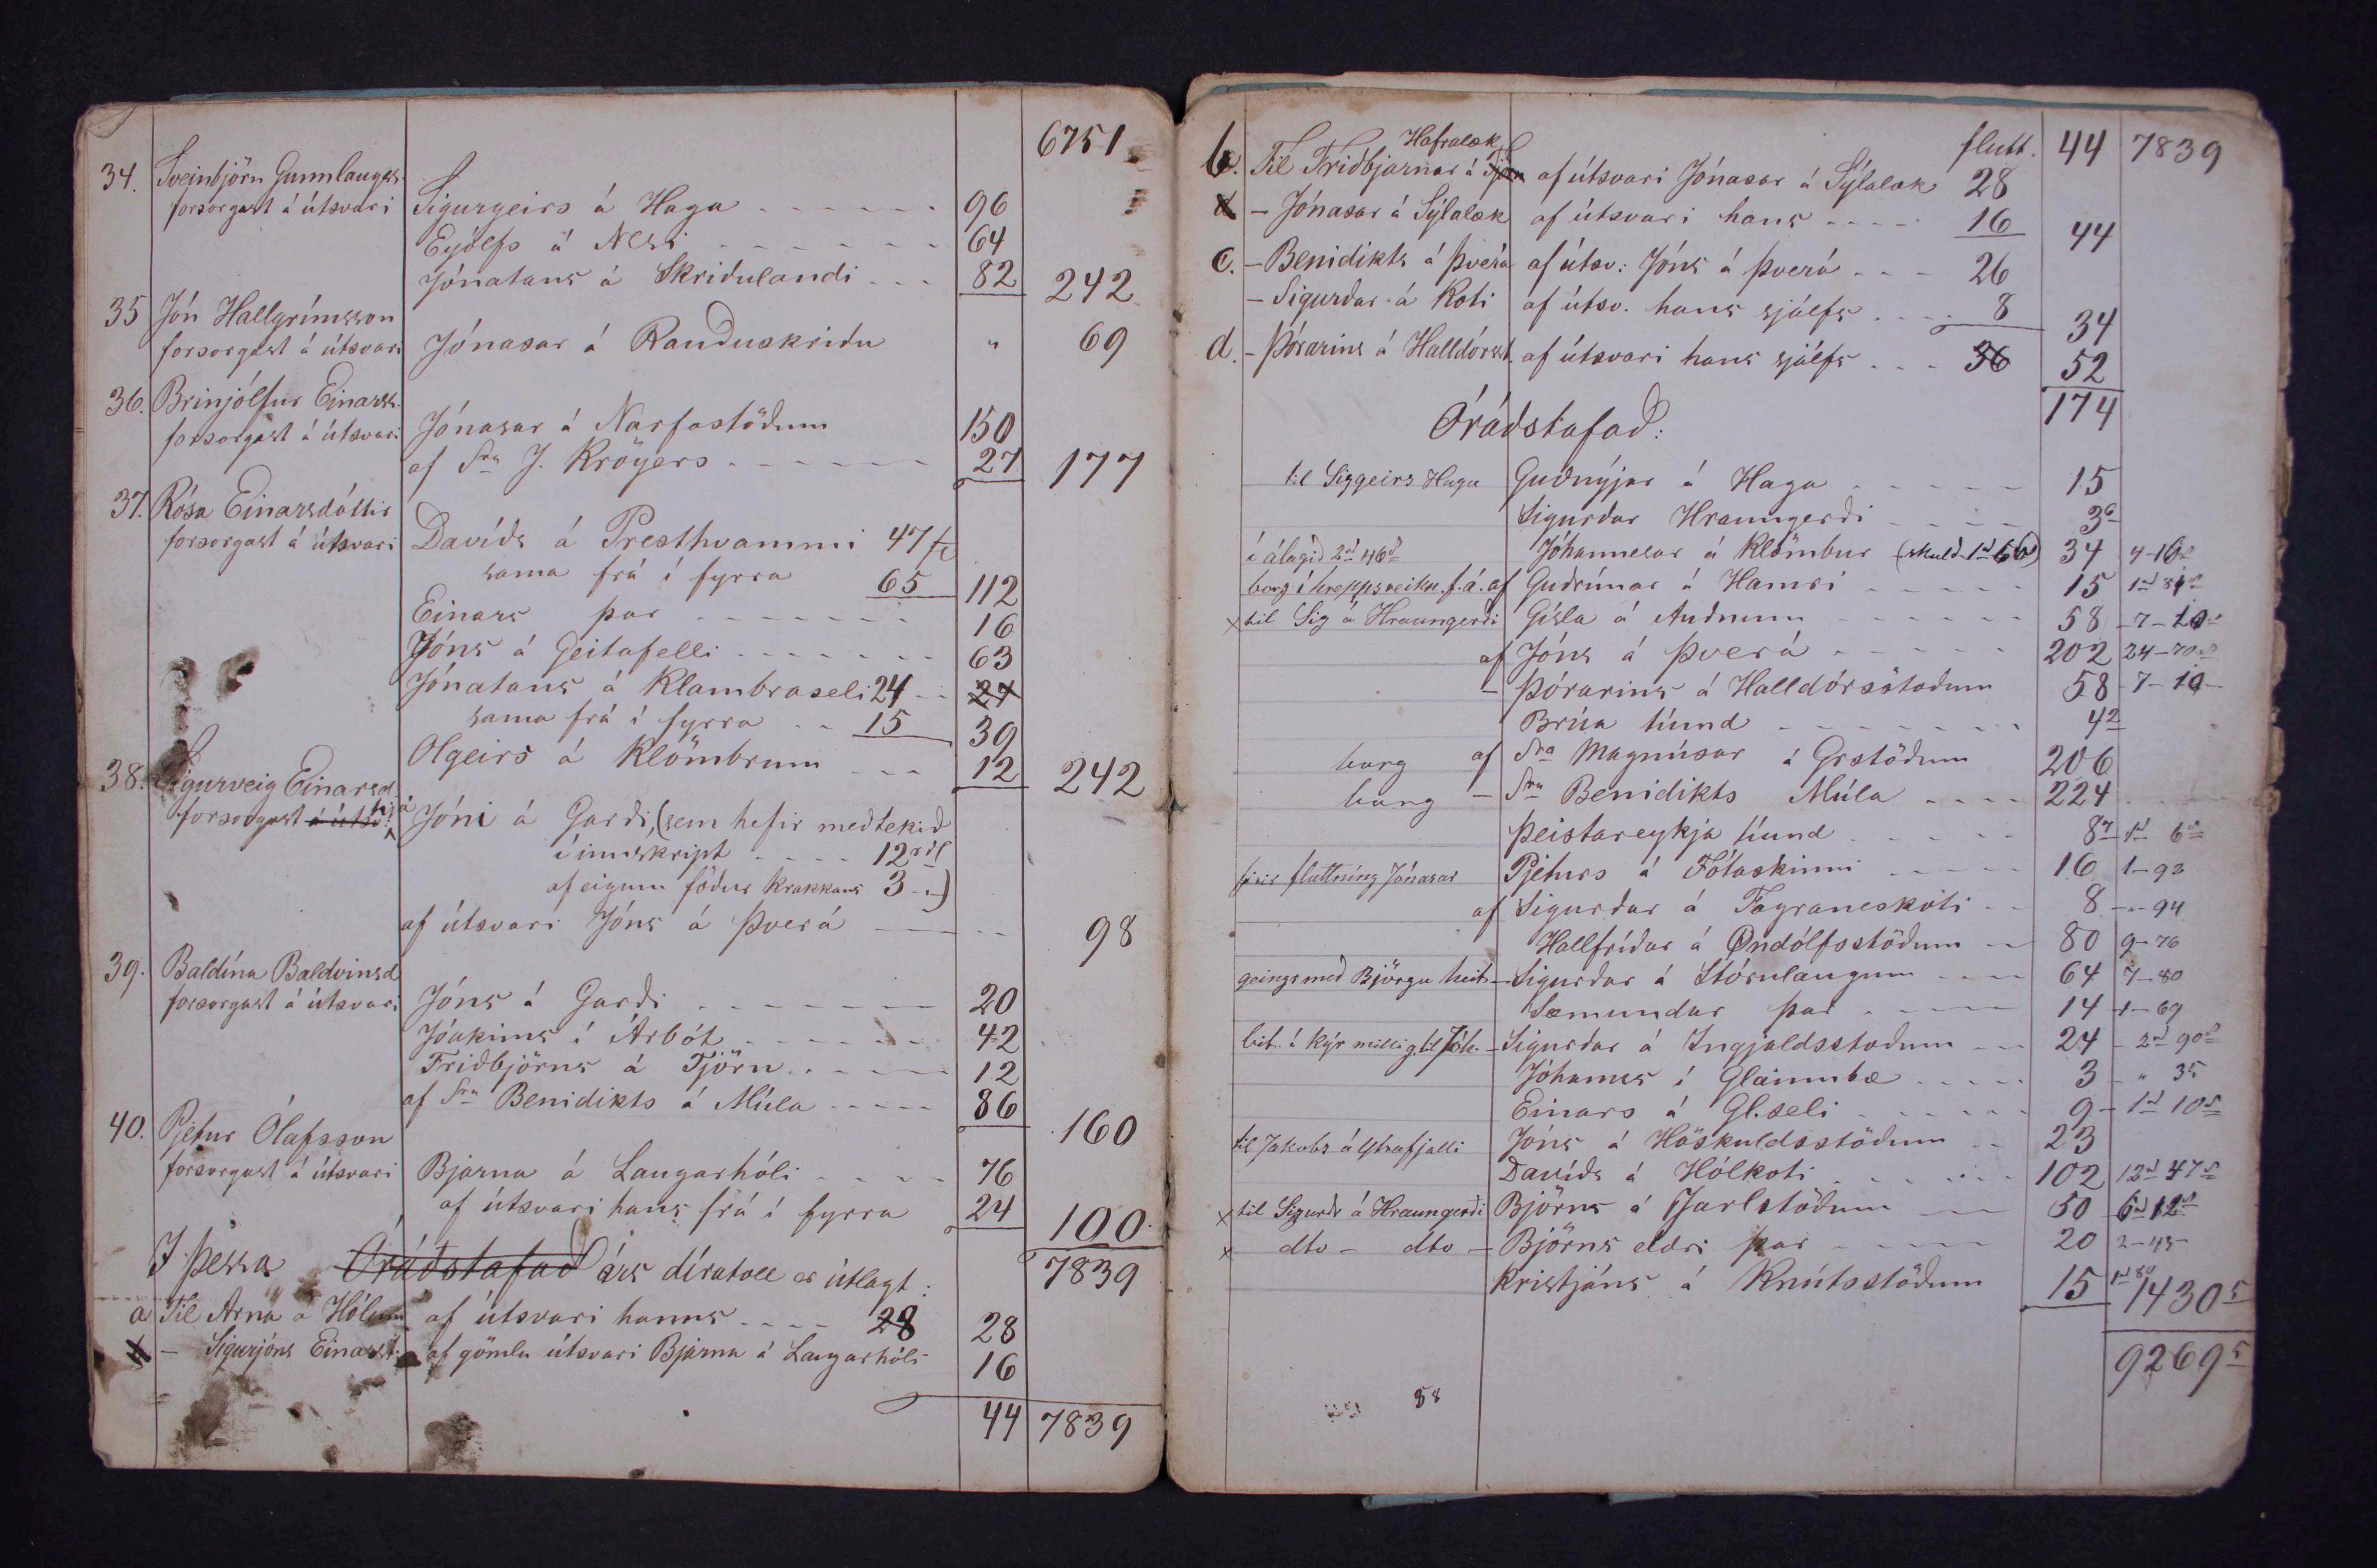 6751
34. Sveinbjörn Gunnlaugss.
forsorgast á útsvari Sigurgeirs á Haga 96
Eyólfs á Nesi 64
Jónatans á Skriðulandi 82 242
35 Jón Hallgrímsson
forsorgast á útsvari Jónasar á Rauðuskriðu " 69
36. Brinjólfur Einarss.
forsorgast á útsvari Jónasar á Narfastöðum 150
af Sra J. Kröyers 27 177
37. Rósa Einarsdóttir
forsorgast á útsvari Davíðs á Presthvammi 47
sama frá í fyrra 65 112
Einars þar 16
Jóns á Geitafelli 63
Jónatans á Klambraseli 24 24
sama frá í fyrra 15 39
Olgeirs á Klömbrum 12 242
38. Sigurveig Einarsd
forsorgast á útsv: hjá Jóni á Garði, (sem hefir meðtekið
í innskript 12 rdl
af eigum föður krakkans 3 - " )
af útsvari Jóns á Þverá 98
39. Baldína Baldvinsd
forsorgast á útsvari Jóns á Garði 20
Jóakims í Árbót 42
Friðbjörns á Tjörn 12
af Sra Benidikts á Múla 86 160
40. Pjetur Ólafsson
forsorgast á útsvari Bjarna á Laugarhóli 76
af útsvari hans frá í fyrra 24 100
7839
Í þessa Óráðstafað árs díratoll er útlagt:
a Til Arna á Hólum af útsvari hanns 28 28
- Sigurjóns Einarss: af gömlu útsvari Bjarna á Laugarhóli 16
44 7839
flutt. 44 7839
Hafralæk
b. Til Friðbjarnar á Tjörn af útsvari Jónasar á Sýlalæk 28
d - Jónasar á Sýlalæk af útsvari hans 16 44
c. - Benidikts á Þverá af útsv: Jóns á Þverá 26
- Sigurðar á Koti af útsv. hans sjálfs 8 34
d. - Þórarins á Halldórsst. af útsvari hans sjálfs 36 52
174
Óráðstafað:
til Siggeirs Haga Guðnýjar á Haga 15
Sigurðar Hraungerði 3 6
í álagið 2rd 46s Jóhannesar á Klömbur (skuld 1rd 66) 34 4-16
borg í hreppsreikn. f. á. af Guðrúnar á Hamri 15 1rd 84
× til Sig á Hraungerði Gísla á Auðnum 58 7-10
af Jóns á Þverá 202 24-70
- Þórarins á Halldórsstöðum 58 7-10
Brúa tíund 4 2
borg af Sra Magnúsar á Grstöðum 206
borg - Sra Benidikts Múla 224
Þeistareykja tíund 8 7 1rd 6
firir fluttning Jónasar Pjeturs á Fótaskinni 16 1-93
af Sigurðar á Fagraneskoti 8 "-94
Hallfríðar á Öndólfsstöðum 80 9-76
geingr með Björgu heit. - Sigurðar á Stórulaugum 64 7-80
Sæmundar þar 14 1-69
bit. í kýr millig. til Jóh. - Sigurðar á Ingjaldsstöðum 24 2rd 90
Jóhanns í Glaumbæ 3 " 35
Einars á Gl.seli 9 1rd 10s
til Jakobs á Ytrafjalli Jóns á Höskuldsstöðum 23
Davíðs á Hólkoti 102 12rd 47s
× til Sigurðr á Hraungerði Björns á Jarlstöðum 50 6rd 12s
× dto - dto - Björns eldri þar 20 2-43
Kristjáns á Knútsstöðum 15 1rd 80
1430 5
9269 5
58